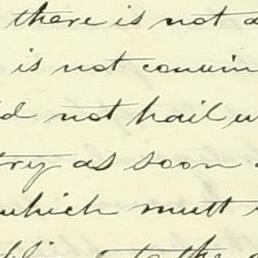 there is not a
is not convin
d not hail u
try as soon
which mutt
to the